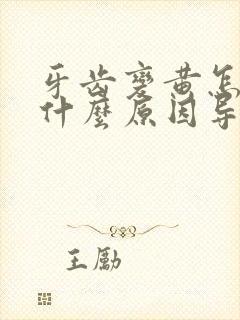 牙齿变黄怎
什麼原因导
王励